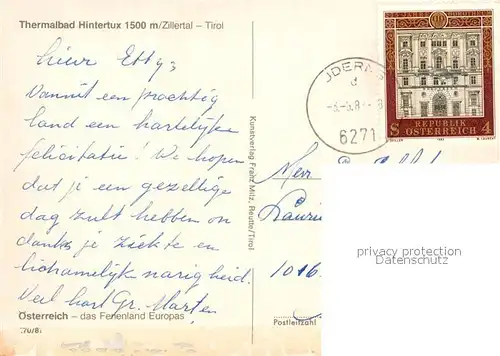 Thermalbad Hintertux 1500 m/Zillertal – Tirol
Lieve Etty,
Vanuit een prachtig
land een hartelijke
felicitatie! We hopen
dat je een gezellige
dag zult hebben on
danks je ziekte en
lichamelijk narigheid.
Veel hart. Gr. Marten
Österreich – das Ferienland Europas
Kunstverlag Franz Milz, Reutte/Tirol
6271
REPUBLIK
S ÖSTERREICH 4
Mevr
1016
Postleitzahl
privacy protection
Datenschutz